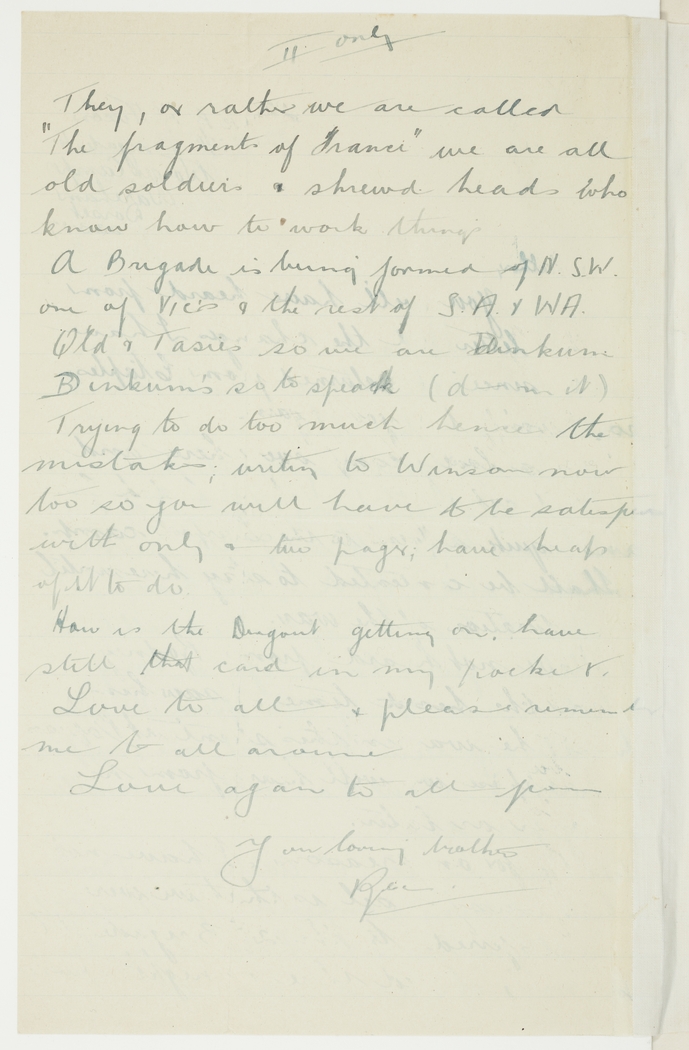 II only
They, or rather we are called
"The fragments of France" we are all
old soldiers & shrewd heads who
know how to work things
A Brigade is being formed of N.S.W.
one of Vics & the rest of S.A. & WA.
Qld & Tassies so we are Dinkum
Dinkums so to speak (d it)
Trying to do too much hence the
mistakes; writing to Winsom now
too so you will have to be
with only two pages; have heaps
of it to do.
How is the Dugout getting on, have
still that card in my pocket.
Love to all & please
me to all around
Love again to all from
Your loving brother